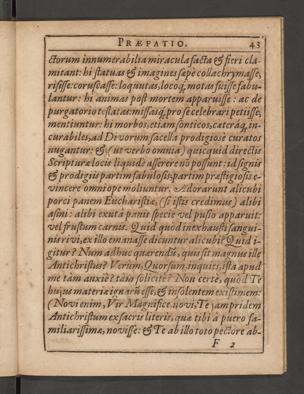 PRÆFATIO. 43
ctorum innumerabilia miracula facta & fieri cla-
mitant: hi statuas & imagines sæpè collachrymasse,
risisse: coruscasse: loquutas, locoq, motas fuisse fabu-
lantur: hi animas post mortem apparuisse: ac de
purgatorio testatas: missasq, pro se celebrari petiisse,
mentiuntur: hi morbos, etiam sonticos, cæteráq, in-
curabiles, ad Divorum sacella prodigiose curatos
nugantur: & (ut verbo omnia) quicquid directis
Scripturæ locis liquidò asserere nō possunt: id signis
& prodigiis partim fabulosis, partim præstigiosis e-
vincere omni ope moliuntur. Adorarunt alicubi
porci panem Eucharistiæ, (si istis credimus) alibi
asini: alibi exuta panis specie vel pusio apparuit:
vel frustum carnis. Quid quod inexhausti sangui-
nis rivi, ex illo emanasse dicuntur alicubi? Quid i-
gitur? Num adhuc quarendū, quis sit magnus ille
Antichristus? Verum, Quorsum, inquies, ista apud
me tàm anxiè? tàm solicitè? Non certè, quod Te
hujus materiæ ignarū esse, & insolentem existimem:
(Novi enim, Vir Magnifice, novi, Te jampridem
Antichristum ex sacris literis, quæ tibi à puero fa-
miliarissimæ, novisse: & Te ab illo toto pectore ab-
F 2